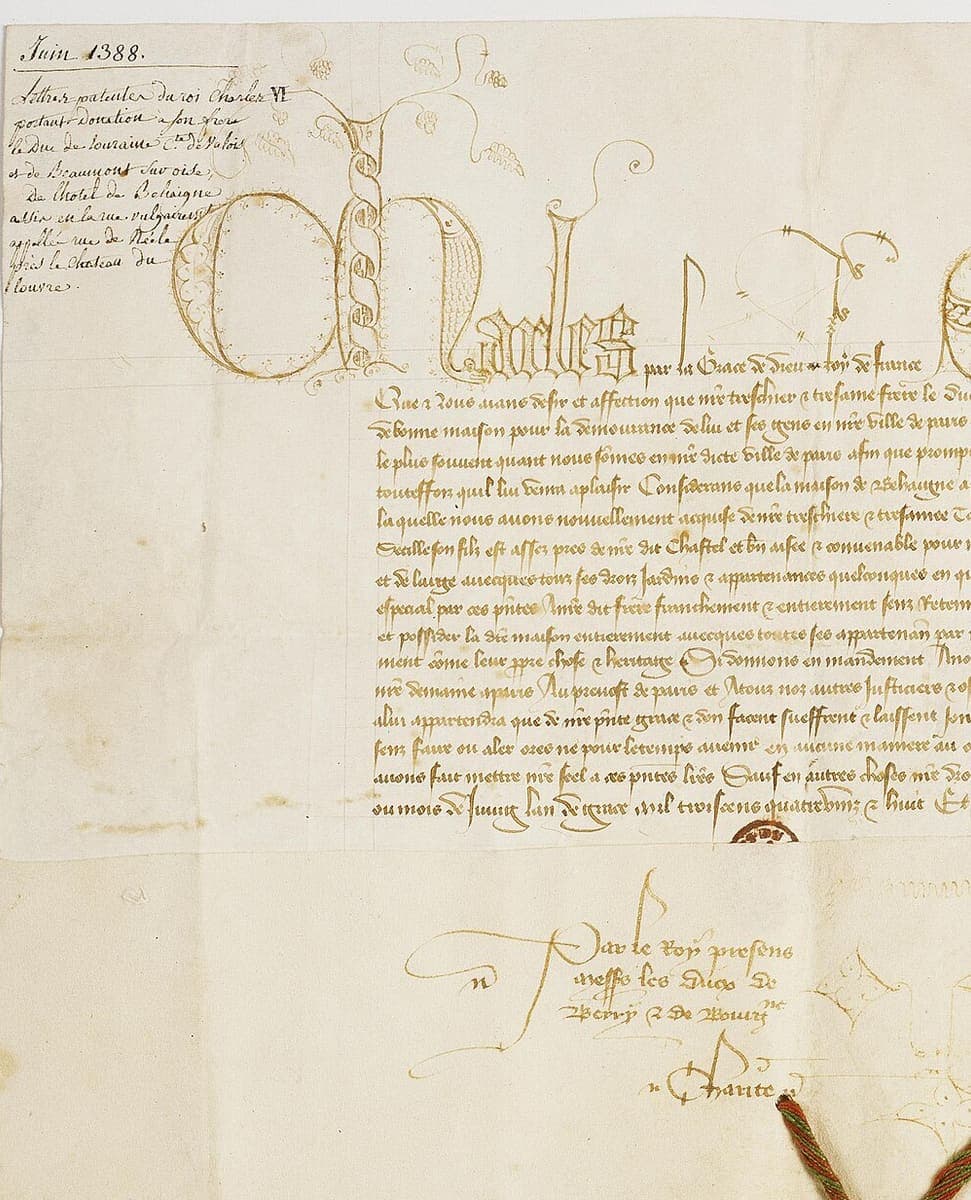 Juin 1388.
Lettres patentes du roi Charles VI
portant Donation a son frere
le Duc de Touraine Cte de Valois
et de Beaumont Sur oise,
De l'hotel de Behaigne
assis en la rue vulgairement
appellée rue de Néele
près le Chateau du
louvre.
Charles par la Grace de dieu roy de france
Que Nous aians desir et affection que nre treschier & tresame frere le Duc
de bonne maison pour la demourance de lui et ses gens en nre ville de paris
le plus souvent quant nous sômes en nre dicte ville de paris afin que promp
touteffoiz quil lui venra a plaisir Considerans que la maison de Behaigne a
la quelle nous avons nouvellement acquise de nre treschiere & tresamee Ta
Secille son filz est assez pres de nre dit Chastel et bn aisee & convenable pour
et de large avecques touz ses droiz Jardins & appartenances quelconques en qu
especial par ces pntes A nre dit frere franchement & entierement senz Reten
et possider la dte maison entierement avecques toutes ses appartenan par
ment côme leur ppre chose & heritage Si donnons en mandement A no
nre demaine a paris Au prevost de paris et A touz noz autres Justiciers & o
a lui appartendra que de nre pnte grace & don facent sueffrent & laissent Joir
senz faire ou aler ores ne pour le temps avenir en aucune maniere au
avons fait mettre nre seel a ces pntes lres Sauf en autres choses nre dro
ou mois de Juing lan de grace mil troiscens quatrevinz & huit Et
Par le Roy presens
messrs les ducx de
Berry & de Bourgne
Charité